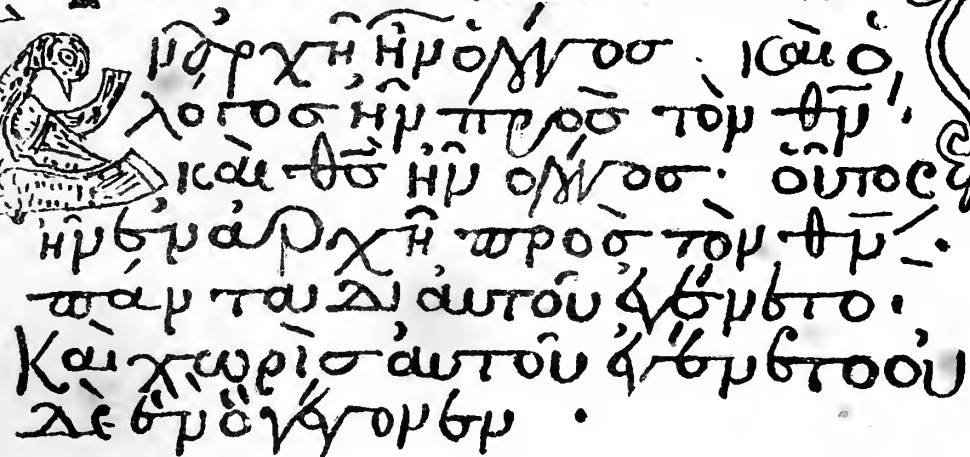 Ἐν ἀρχῇ ἦν ὁ λόγος· καὶ ὁ
λόγος ἦν πρὸς τὸν θν̅·
καὶ θς̅ ἦν ὁ λόγος· οὗτος
ἦν ἐν ἀρχῇ πρὸς τὸν θν̅·
πάντα δι αὐτοῦ ἐγένετο·
Καὶ χωρὶς αὐτοῦ ἐγένετο οὐ
δὲ ἓν ὃ γέγονεν·